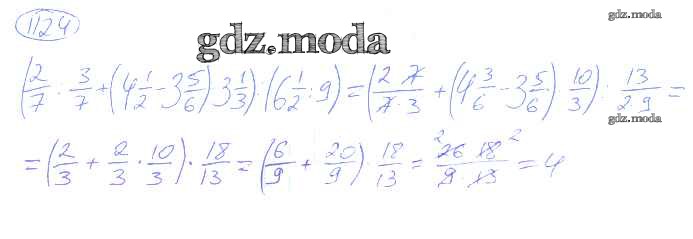 1124
gdz.moda
gdz.moda
(2/7 : 3/7 + (4 1/2 - 3 5/6) · 3 1/3) : (6 1/2 : 9) = (2·7/7·3 + (4 3/6 - 3 5/6) · 10/3) : 13/2·9 =
gdz.moda
= (2/3 + 2/3 · 10/3) · 18/13 = (6/9 + 20/9) · 18/13 = 26·18/9·13 = 4
gdz.moda